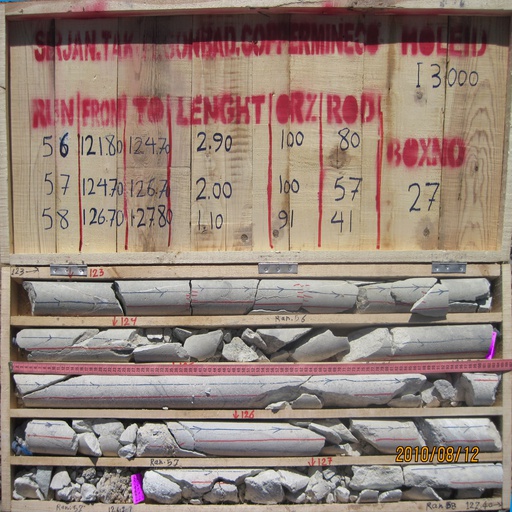 SERJAN.TAK GONBAD.COPPERMINECO HOLEID
I 3000
RUN FROM TO LENGHT CRZ ROD
56 121.80 124.70 2.90 100 80
BOXNO
57 124.70 126.70 2.00 100 57
27
58 126.70 127.80 1.10 91 41
123 123
124 Run.56
126
Run.57 127
Run.58
2010/08/12